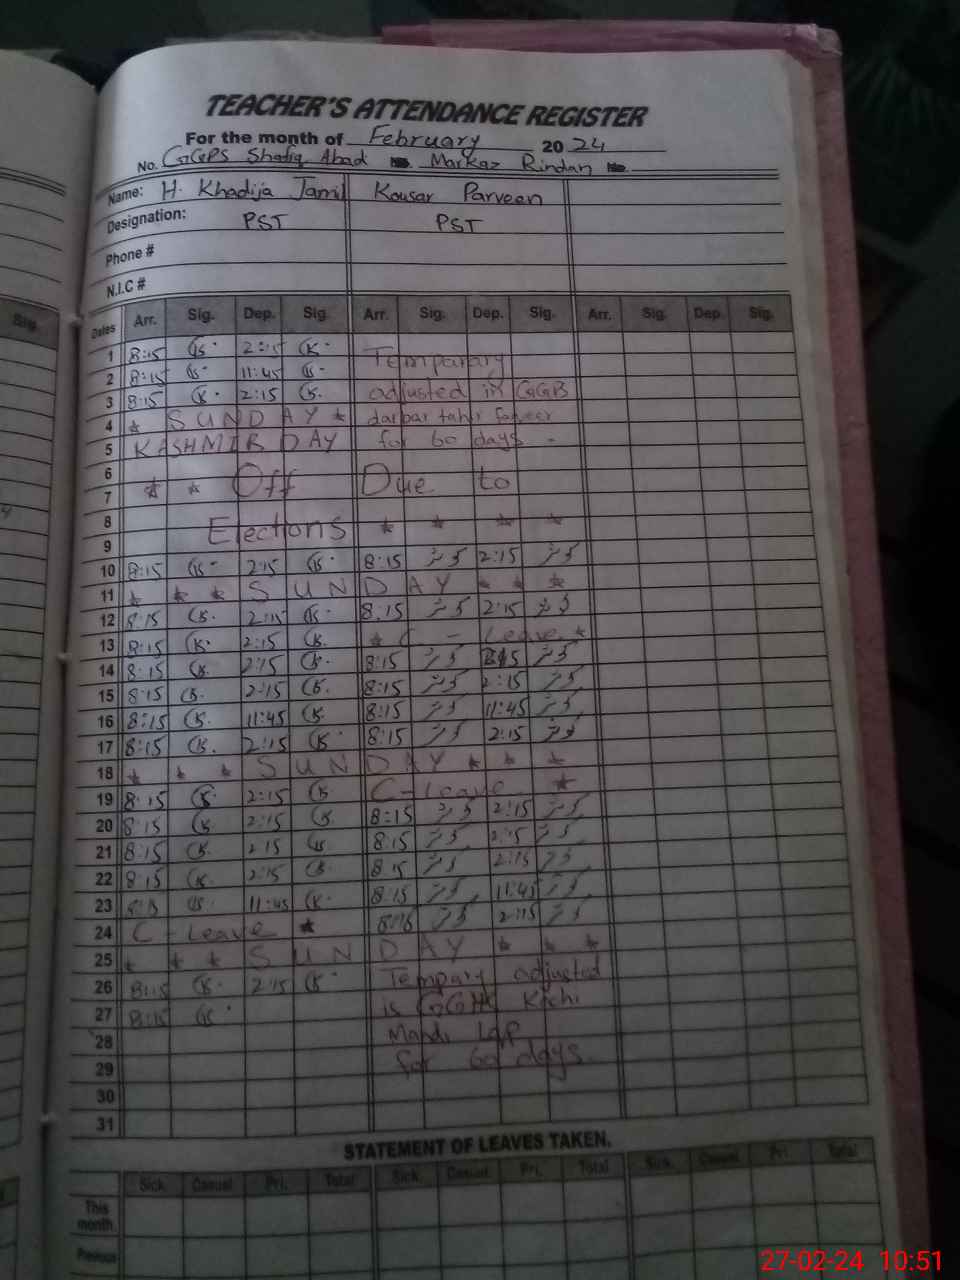 TEACHER'S ATTENDANCE REGISTER
For the month of February 20 24
No. GGPS Shafiq Abad Markaz Rindan
Name: H. Khadija Jamil Kousar Parveen
Designation: PST PST
Phone #
N.I.C #
Sig.
Dates Arr. Sig. Dep. Sig. Arr. Sig. Dep. Sig. Arr. Sig. Dep. Sig.
1 8:15 2:15 Temparary
2 8:15 11:45
3 8:15 2:15 adjusted in
4 * SUNDAY * darbar
5 KASHMIR DAY for 60 days -
6
7 * * Off Due to
8
9 Elections * * * *
10 8:15 2:15 8:15 2:15
11 * * * SUNDAY * * *
12 8:15 2:15 8:15 2:15
13 8:15 2:15 * C - Leave *
14 8:15 2:15 8:15
15 8:15 2:15 8:15 2:15
16 8:15 11:45 8:15 11:45
17 8:15 2:15 8:15 2:15
18 * * * SUNDAY * * *
19 8:15 2:15 C-Leave *
20 8:15 2:15 8:15 2:15
21 8:15 2:15 8:15 2:15
22 8:15 2:15 8:15 2:15
23 8:15 11:45 8:15 11:45
24 C-Leave * 8:15 2:15
25 * * * SUNDAY * * *
26 8:15 2:15 Tempary adjusted
27 8:15 is Kachi
28 Mandi
29 for 60 days
30
31
STATEMENT OF LEAVES TAKEN.
Sick Casual Pri. Total Sick. Casual Pri. Total Sick. Casual Pri. Total
This month
Previous
27-02-24 10:51